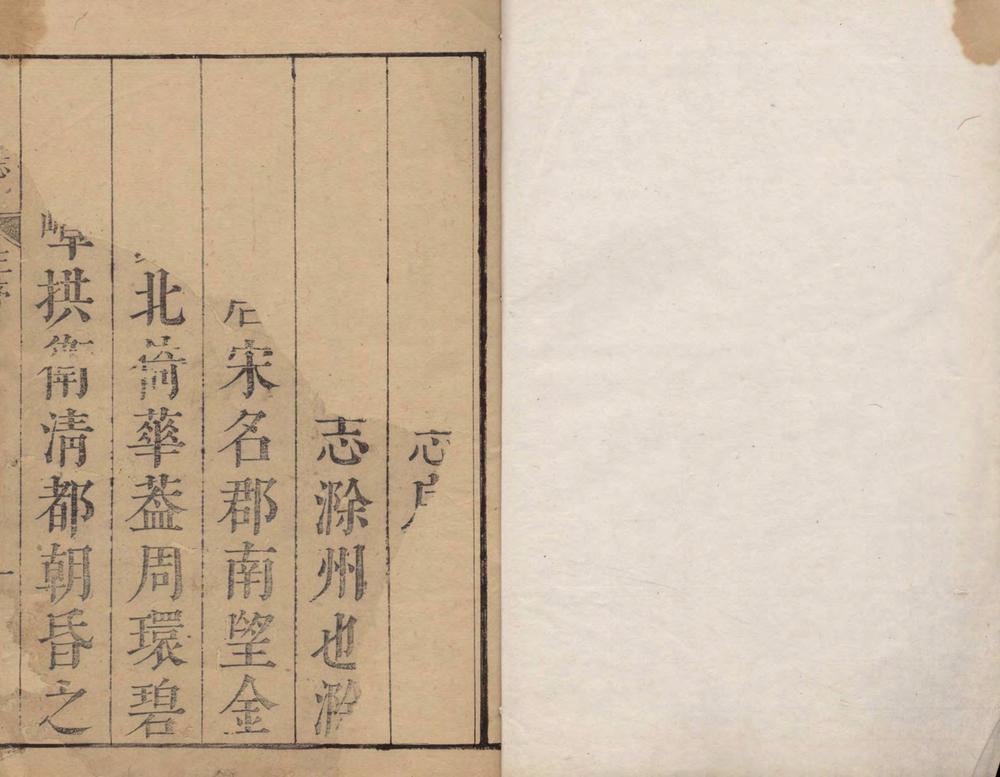 志
志滁州也滁
宋名郡南望金
北倚華葢周環碧
拱衛清都朝昏之